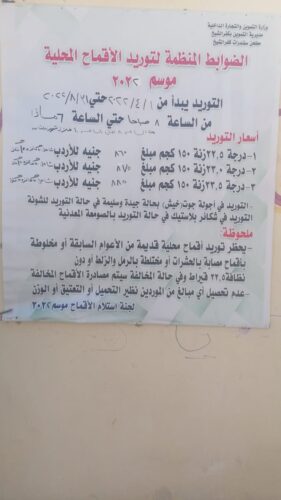 وزارة التموين والتجارة الداخلية
مديرية التموين بكفرالشيخ
الضوابط المنظمة لتوريد الأقماح المحلية
موسم ٢٠٢٢
التوريد يبدأ من ٢٠٢٢/٤/١ حتي ٢٠٢٢/٨/٣١
من الساعة ٨ صباحا حتي الساعة ٦ مساءً
أسعار التوريد
١- درجة ٢٢,٥ زنة ١٥٠ كجم مبلغ ٨٦٠ جنيه للأردب
٢- درجة ٢٣,٠ زنة ١٥٠ كجم مبلغ ٨٧٠ جنيه للأردب
٣- درجة ٢٣,٥ زنة ١٥٠ كجم مبلغ ٨٨٠ جنيه للأردب
التوريد في أجولة جوت/خيش/ بحالة جيدة وسليمة في حالة التوريد للشونة
التوريد في شكائر بلاستيك في حالة التوريد بالصومعة المعدنية
ملحوظة
- يحظر توريد أقماح محلية قديمة من الأعوام السابقة أو مخلوطة
بأقماح مصابة بالحشرات أو مختلطة بالرمل والزلط أو دون
نظافة ٢٢,٥ قيراط وفي حالة المخالفة سيتم مصادرة الأقماح المخالفة
- عدم تحصيل أي مبالغ من الموردين نظير التحميل أو التعتيق أو الوزن
لجنة استلام الأقماح موسم ٢٠٢٢